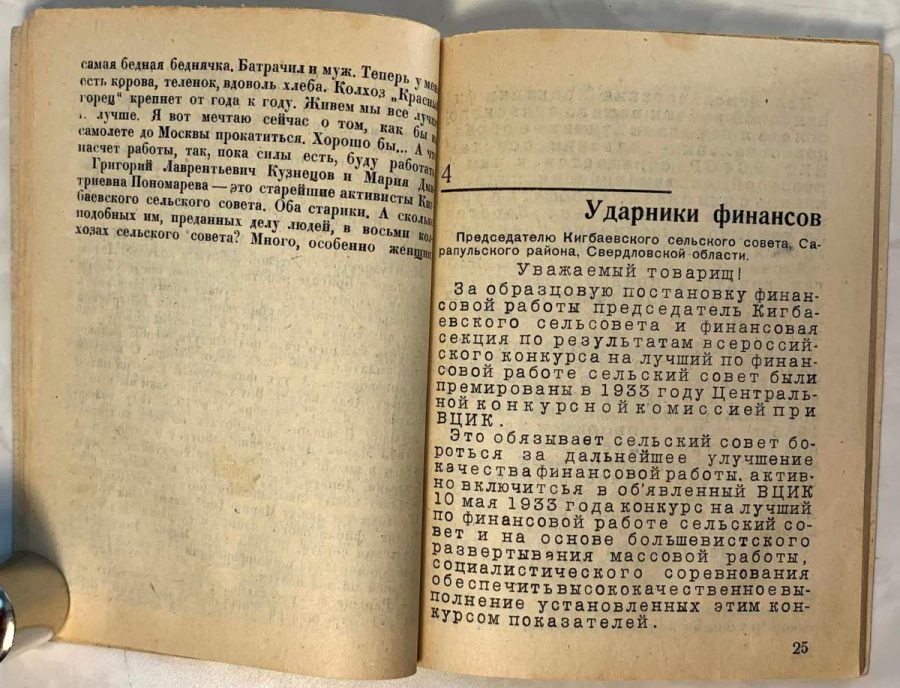 самая бедная беднячка. Батрачил и муж. Теперь у мен
есть корова, теленок, вдоволь хлеба. Колхоз „Красны
горец“ крепнет от года к году. Живем мы все лучш
и лучше. Я вот мечтаю сейчас о том, как бы
самолете до Москвы прокатиться. Хорошо бы... А чт
насчет работы, так, пока силы есть, буду работать
Григорий Лаврентьевич Кузнецов и Мария Дми
триевна Пономарева — это старейшие активисты Киг
баевского сельского совета. Оба старики. А сколько
подобных им, преданных делу людей, в восьми кол
хозах сельского совета? Много, особенно женщин
4
Ударники финансов
Председателю Кигбаевского сельского совета, Са-
рапульского района, Свердловской области.
Уважаемый товарищ!
За образцовую постановку финан-
совой работы председатель Кигба-
евского сельсовета и финансовая
секция по результатам всероссий-
ского конкурса на лучший по финан-
совой работе сельский совет были
премированы в 1933 году Централь-
ной конкурсной комиссией при
ВЦИК.
Это обязывает сельский совет бо-
роться за дальнейшее улучшение
качества финансовой работы, актив-
но включиться в об'явленный ВЦИК
10 мая 1933 года конкурс на лучший
по финансовой работе сельский со-
вет и на основе большевистского
развертывания массовой работы,
социалистического соревнования
обеспечить высококачественное вы-
полнение установленных этим кон-
курсом показателей.
25